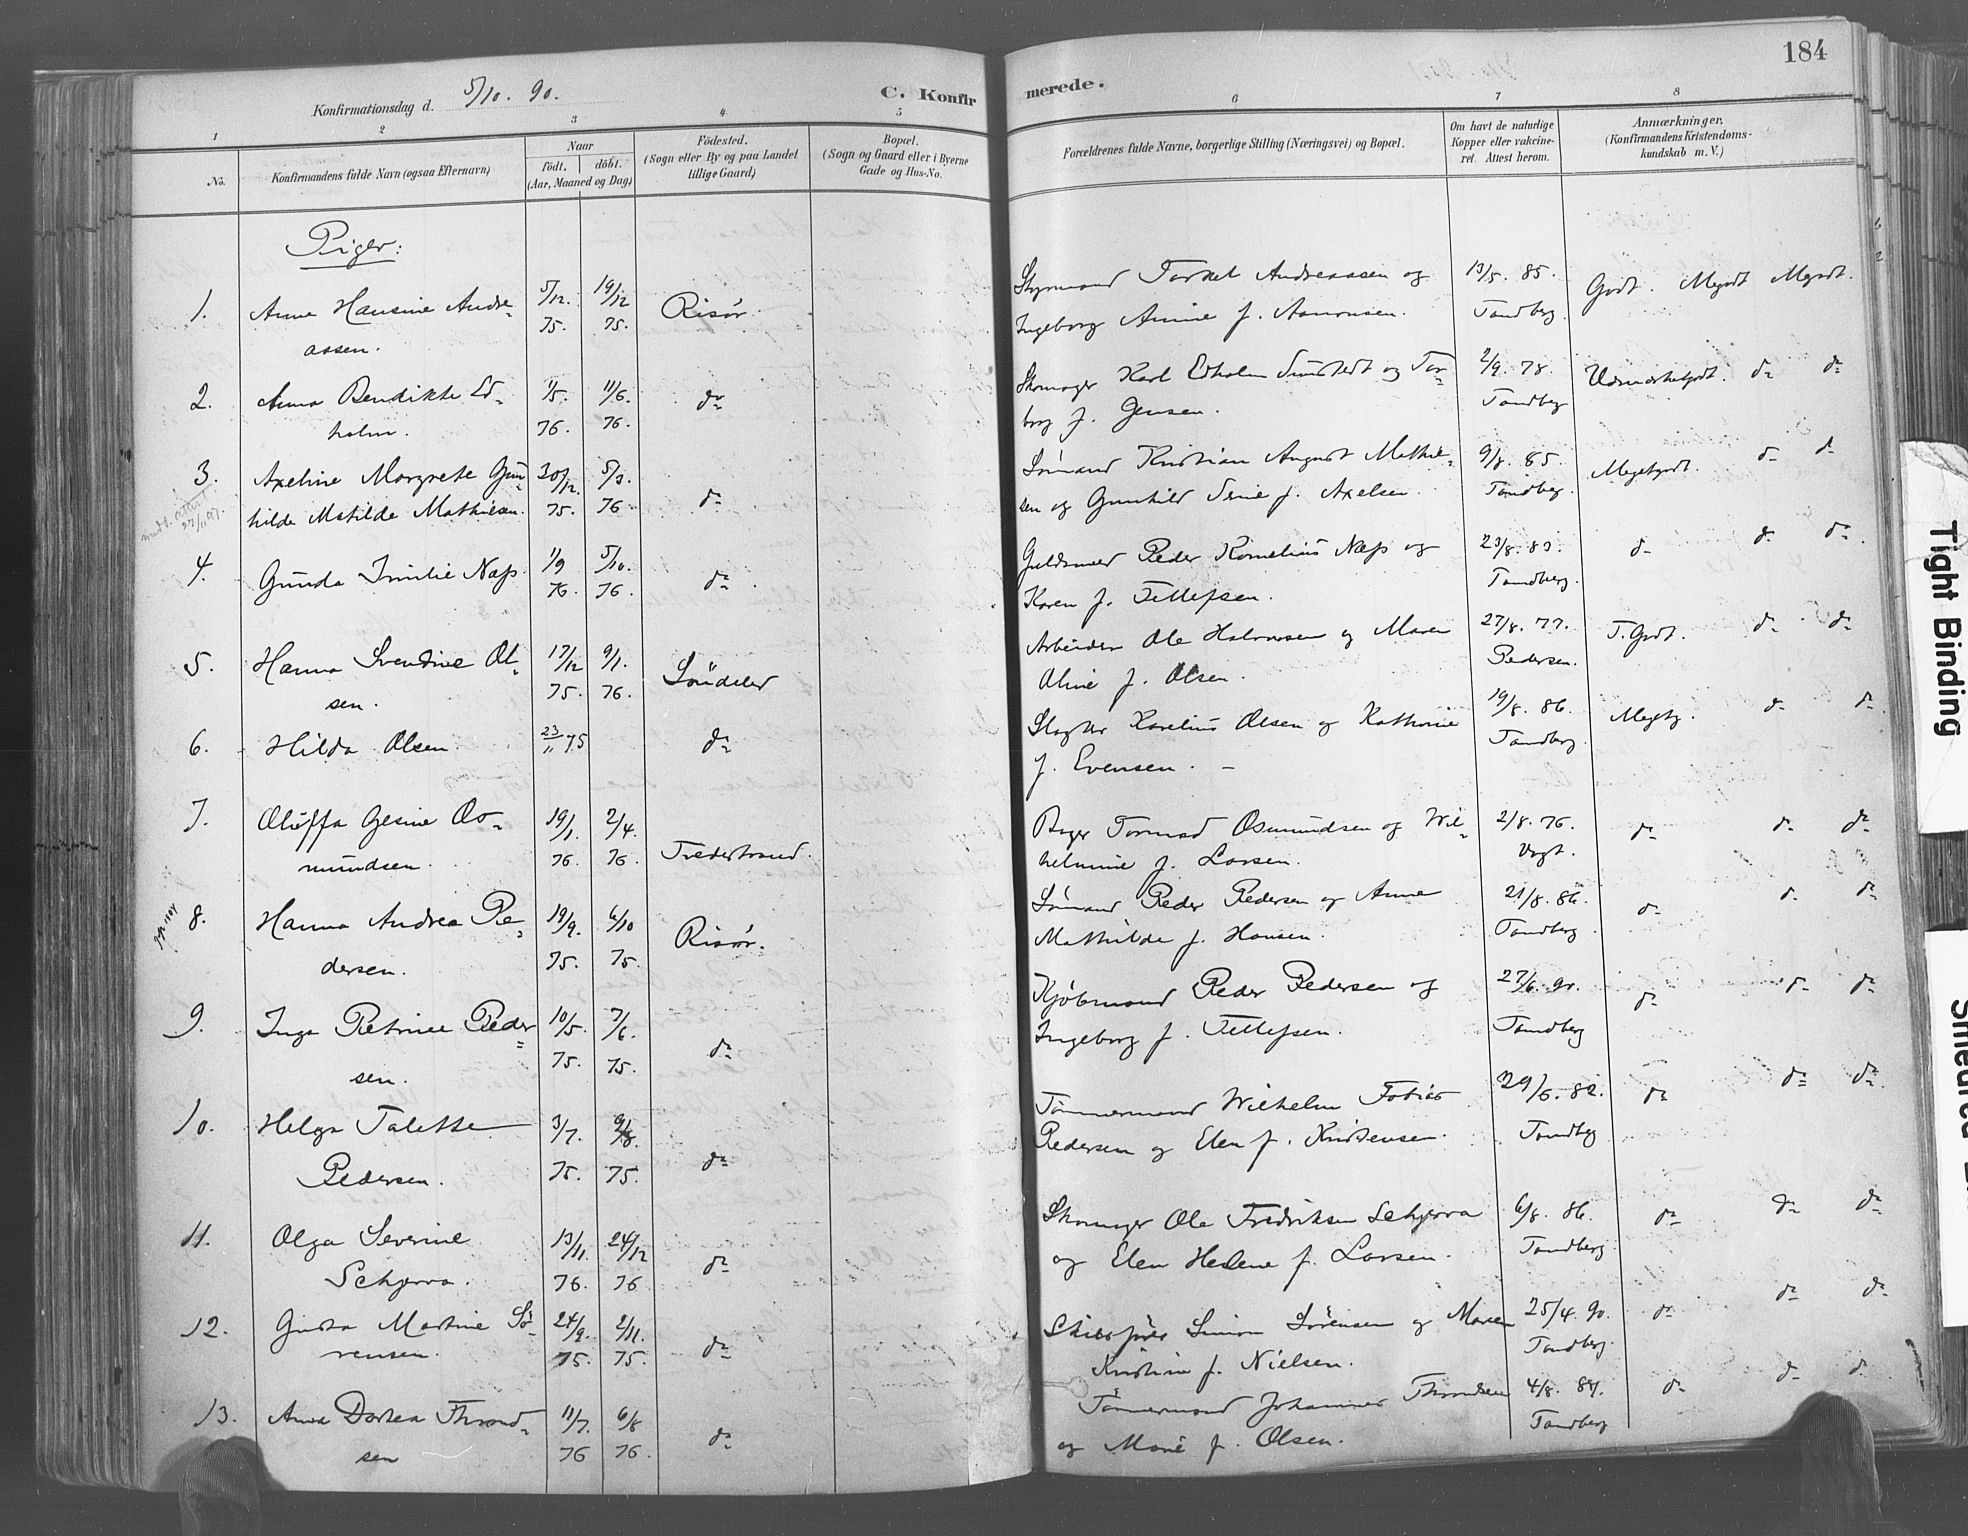 184
Konfirmationsdag d. 5/10. 90.
C. Konfirmerede.
1 2 3 4 5 6 7 8
No.
Konfirmandens fulde Navn (ogsaa Efternavn)
Naar
födt. döbt.
(Aar, Maaned og Dag)
Födested.
(Sogn eller By og paa Landet
tillige Gaard)
Bopæl.
(Sogn og Gaard eller i Byerne
Gade og Hus-No.
Forældrenes fulde Navne, borgerlige Stilling (Næringsvei) og Bopæl.
Om havt de naturlige
Kopper eller vakcine-
ret. Attest herom.
Anmærkninger.
(Konfirmandens Kristendoms-
kundskab m. V.)
Piger:
1. Anne Hansine Andre- 5/12. 19/12 Risør. Styrmand Torkel Andreassen og 13/5. 85. Godt. Megodt Megodt.
assen. 75. 75. Ingeborg Annie f. Aamonsen. Tandberg.
2. Anna Bendikte Ed- 1/5. 11/6. do Skomager Karl Edholm Smstedt og Tor- 2/9. 78. Udmærketgodt. do do
holm. 76. 76. borg f. Jensen. Tandberg
3. Axeline Margrete Gun- 30/12. 5/3. do Sømand Kristian August Mathie- 9/8. 85. Megetgodt. do do
hilde Matilde Mathiesen. 75. 76 sen og Gunhild Serine f. Axelsen. Tandberg.
27/11 97.
4. Gunda Emilie Næss. 1/9 5/10. do Guldsmed Peder Kornelius Næss og 23/8. 83. do do do
76. 76. Karen f. Tellefsen. Tandberg.
5. Hanna Svendine Ol- 17/12 9/1. Söndeled Arbeider Ole Halvorsen og Maren 27/8. 77. T. Godt. do do
sen. 75. 76. Oline f. Olsen. Pedersen.
6. Hilda Olsen 23/11 75 do Slagter Karelius Olsen og Kathrine 19/8. 86. Megetg. do do
f. Evensen. Tandberg.
7. Oluffa Gesine Os- 19/1. 2/4. Tvedestrand. Bager Tormod Osmundsen og Wil- 2/8. 76. do do do
mundsen. 76. 76. helmine f. Larsen. Vogt.
8. Hanna Andrea Pe- 19/9. 6/10 Risør. Sømand Peder Pedersen og Anne 21/8. 86. do do do
dersen. 75. 75. Mathilde f. Hansen. Tandberg
9. Inga Petrine Peder- 10/5. 7/6. do Kjøbmand Peder Pedersen og 27/6. 90. do do do
sen. 75. 75. Ingeborg f. Tellefsen. Tandberg
10. Helga Talette 3/7. 9/8. do Tømmermand Wilhelm Tobias 29/6. 82. do do do
Pedersen. 75. 75. Pedersen og Elen f. Kristensen. Tandberg
11. Olga Severine 13/11. 24/12 do Skomager Ole Fredriksen Schjerva 6/8. 86. do do do
Schjerva. 76. 76 og Elen Helene f. Larsen. Tandberg.
12. Gusta Martine Sö- 24/9. 2/11. do Skibsfører Simon Sørensen og Maren 25/4. 90. do do do
rensen. 75. 75. Kristine f. Nielsen. Tandberg.
13. Anna Dortea Thrond- 11/7. 6/8 do Tømmermand Johannes Throndsen 4/8. 87. do do do
sen 76 76. og Marie f. Olsen. Tandberg
Tight Binding